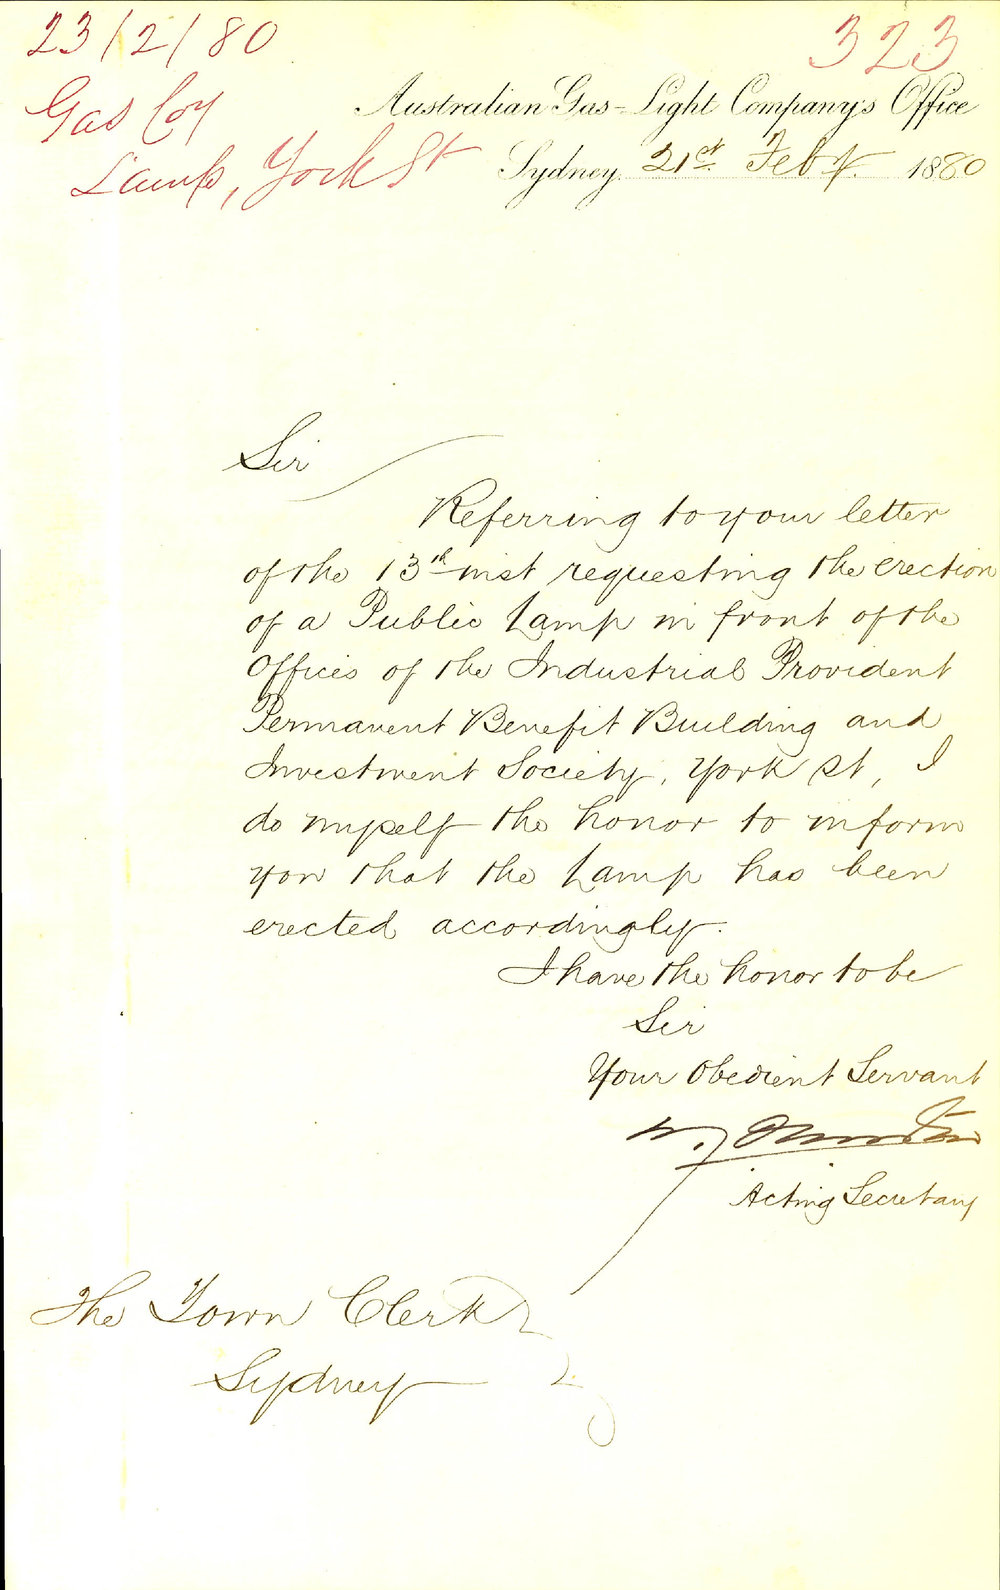 23/2/80
323
Gas Coy
Lamp, York St
Australian Gas-Light Company's Office
Sydney. 21st Feby. 1880
Sir
Referring to your letter
of the 13th inst requesting the erection
of a Public Lamp in front of the
Offices of the Industrial Provident
Permanent Benefit Building and
Investment Society, York St, I
do myself the honor to inform
you that the Lamp has been
erected accordingly.
I have the honor to be
Sir
Your Obedient Servant
Acting Secretary
The Town Clerk
Sydney